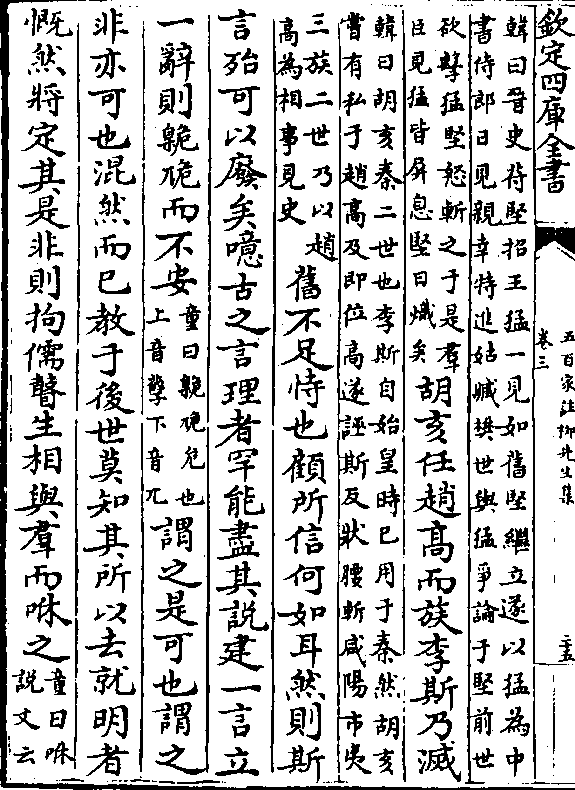 欽定四庫全書
五百家注柳先生集
卷三
三五
韓曰晉史苻堅招王猛一見如舊堅繼立遂以猛為中
書侍郎日見親幸特進姑臧樊世與猛爭論于堅前世
欲擊猛堅怒斬之于是羣
臣見猛皆屏息堅曰熾矣
胡亥任趙高而族李斯乃滅
韓曰胡亥秦二世也李斯自始皇時已用于秦然胡亥
嘗有私于趙高及即位高遂誣斯反狀腰斬咸陽市夷
三族二世乃以趙
高為相事見史
舊不足恃也顧所信何如耳然則斯
言殆可以廢矣噫古之言理者罕能盡其說建一言立
一辭則臲卼而不安
童曰臲卼危也
上音孽下音兀
謂之是可也謂之
非亦可也混然而已教于後世莫知其所以去就明者
慨然將定其是非則拘儒瞽生相與羣而咻之
童曰咻
說文云